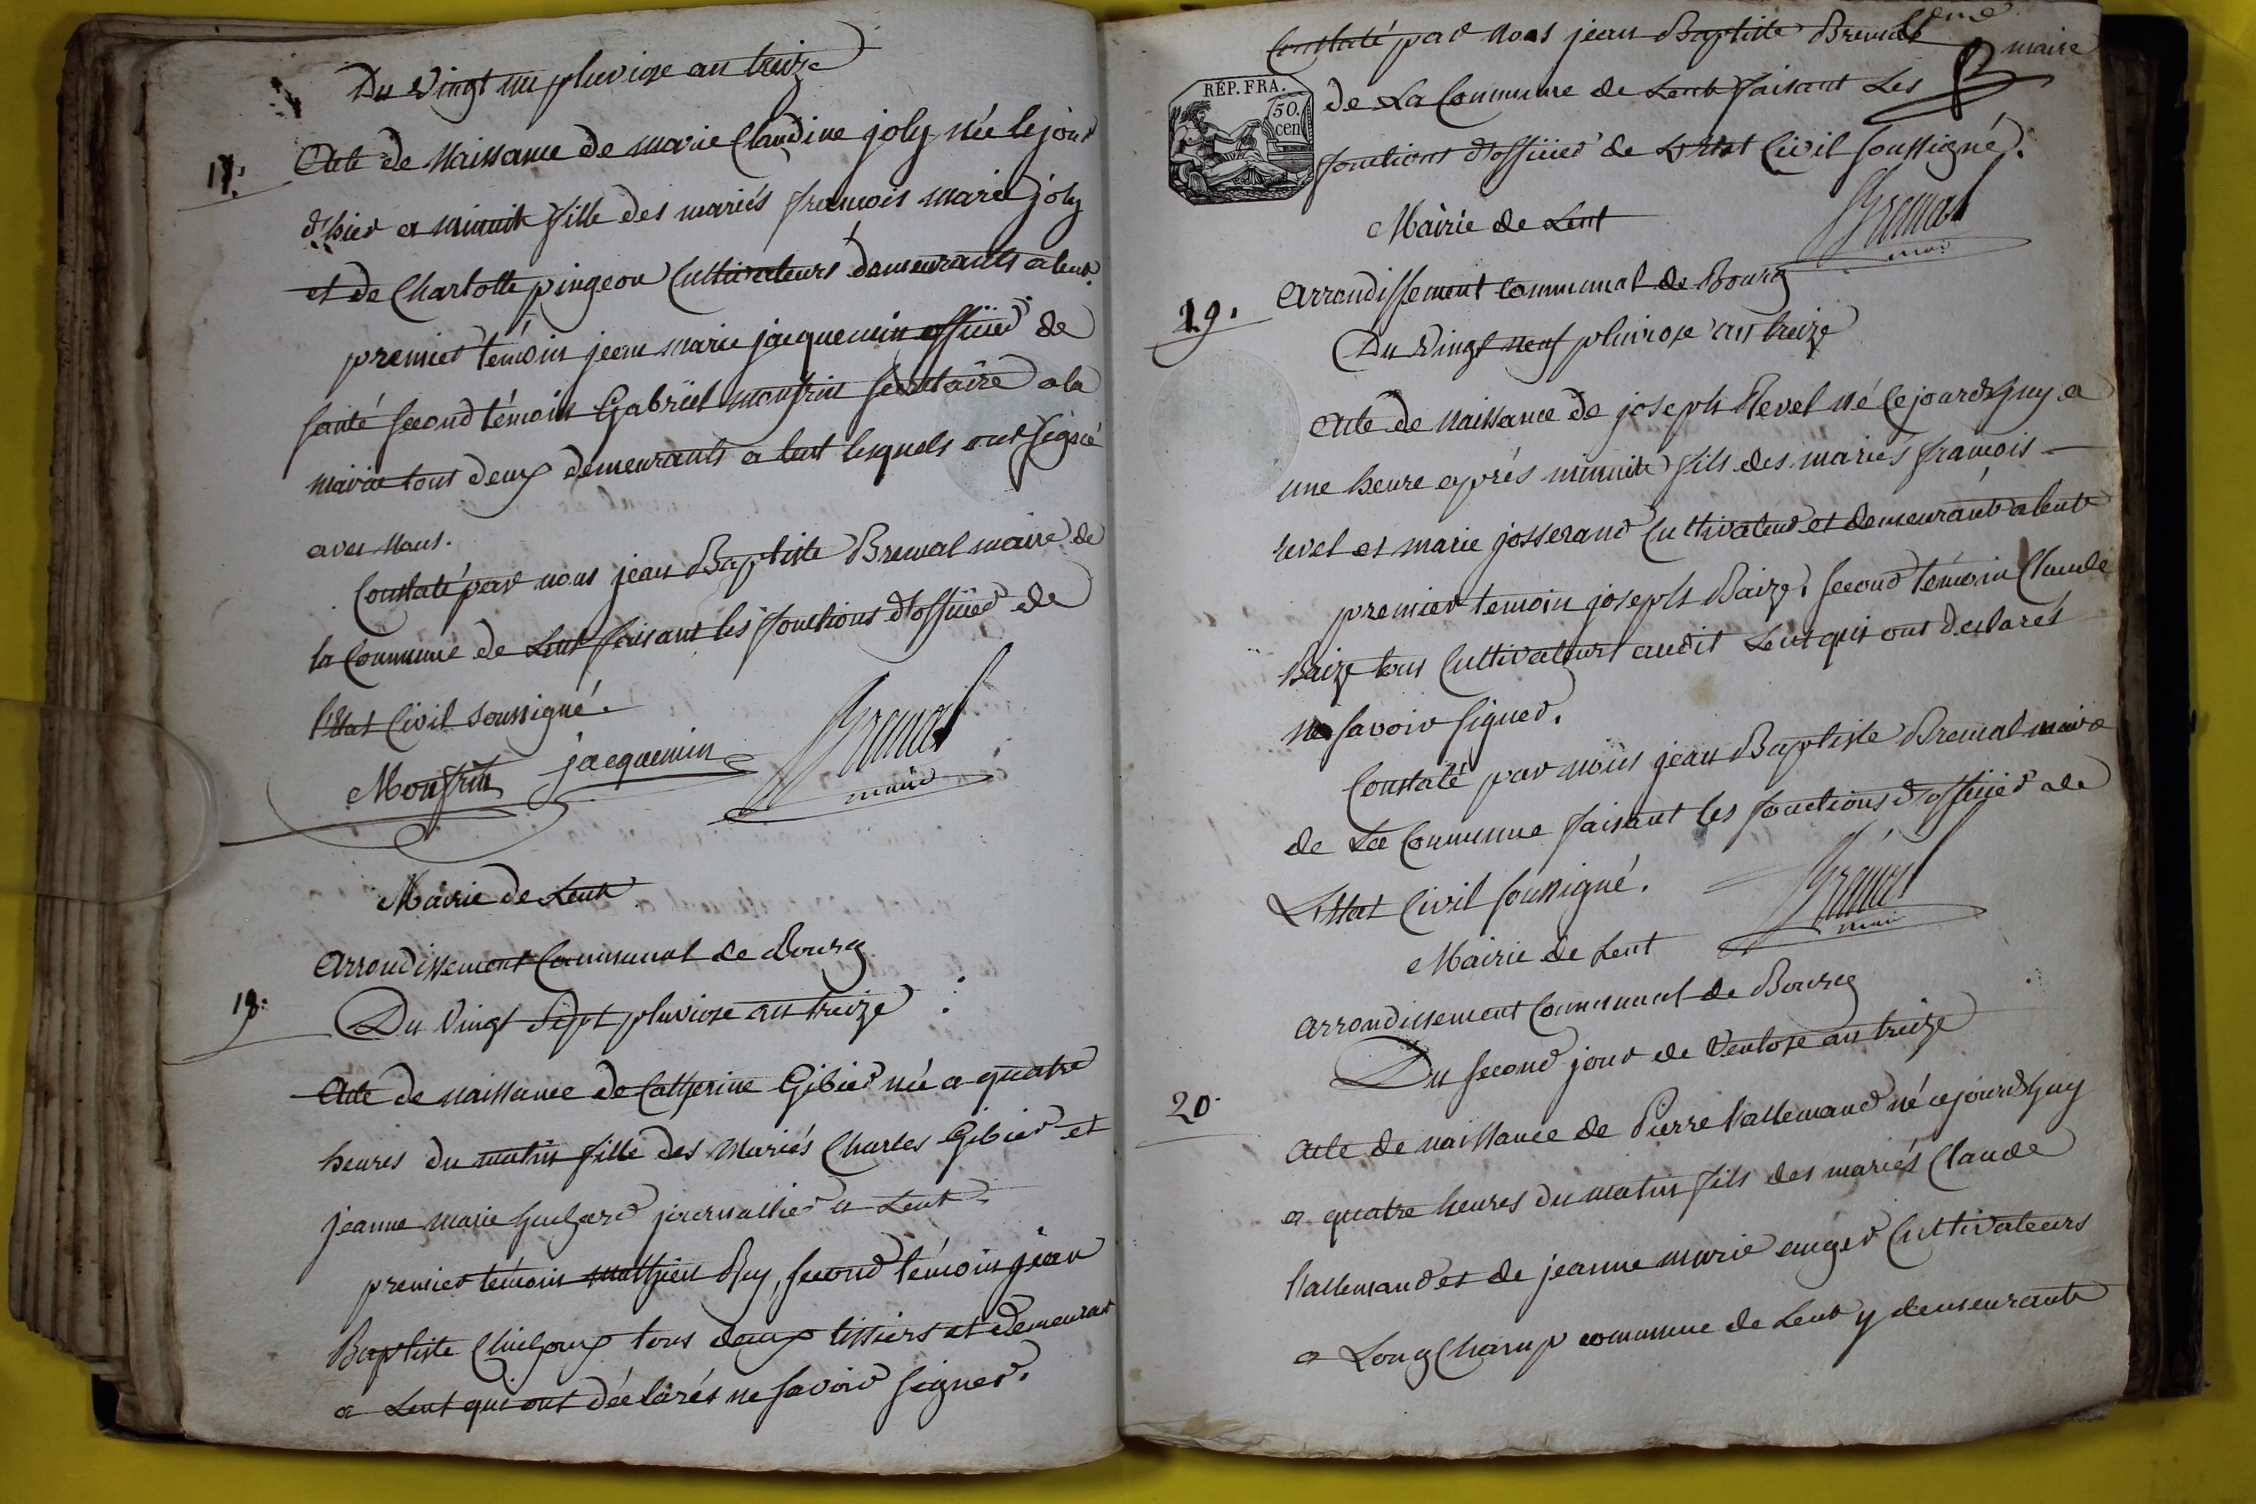 Du Vingt un pluviose an treize
17.
Acte de Naissance de marie Claudine joly née le jour
d'hier a minuit fille des mariés francois marie joly
et de Charlotte pingeon Cultivateurs demeurants a lent.
premier témoin jean marie jacquemin officier de
santé second témoin Gabriel monfrin secretaire a la
mairie tous deux demeurants a lent lesquels ont signé
avec nous.
Constaté par nous jean Baptiste Bremal maire de
la Commune de Lent faisant les fonctions d'officier de
l'Etat Civil soussigné.
Monfrin jacquemin Bremal
maire
Mairie de Lent
Arrondissement Communal de Bourg
18.
Du Vingt Sept pluviose an treize
Acte de naissance de Catherine Gibier née a quatre
heures du matin fille des Mariés Charles Gibier et
jeanne marie journallier a Lent.
premier témoin mathieu second témoin jean
Baptiste tous deux tissiers et demeurant
a Lent qui ont déclarés ne savoir signer.
Constaté par nous jean Baptiste Bremal maire
REP. FRA.
50.
cen
de La Commune de Lent faisant Les
fonctions d'officier de L'Etat Civil soussigné.
Bremal
Mairie de Lent
Arrondissement communal de Bourg
19.
Du Vingt neuf pluviose an treize
Acte de Naissance de joseph Revel né cejourdhuy a
une heure après minuit fils des mariés françois
revel et marie josserand Cultivateur et demeurant a lent
premier temoin joseph Baize. second témoin Claude
Baize tous Cultivateurs audit Lent qui ont declarés
ne savoir signer.
Constaté par nous jean Baptiste Bremal maire
de La Commune faisant les fonctions d'officier de
L'Etat Civil soussigné.
Bremal
Mairie de Lent
Arrondissement Communal de Bourg
Du second jour de Ventose an treize
20.
Acte de naissance de Pierre lallemand né cejourdhuy
a quatre heures du matin fils des mariés Claude
lallemand et de jeanne marie auger Cultivateurs
a LongChamp commune de Lent y demeurants